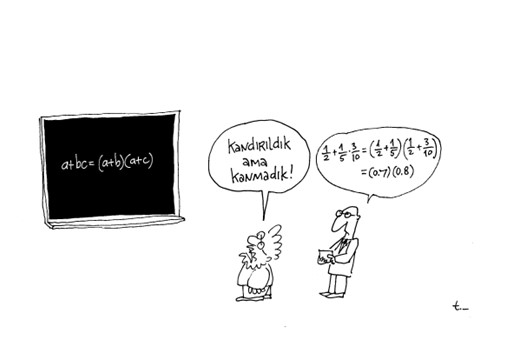 a+bc = (a+b)(a+c)
Kandırıldık
ama
kanmadık!
1/2 + 1/5 · 3/10 = (1/2 + 1/5) (1/2 + 3/10)
= (0.7) (0.8)
t._